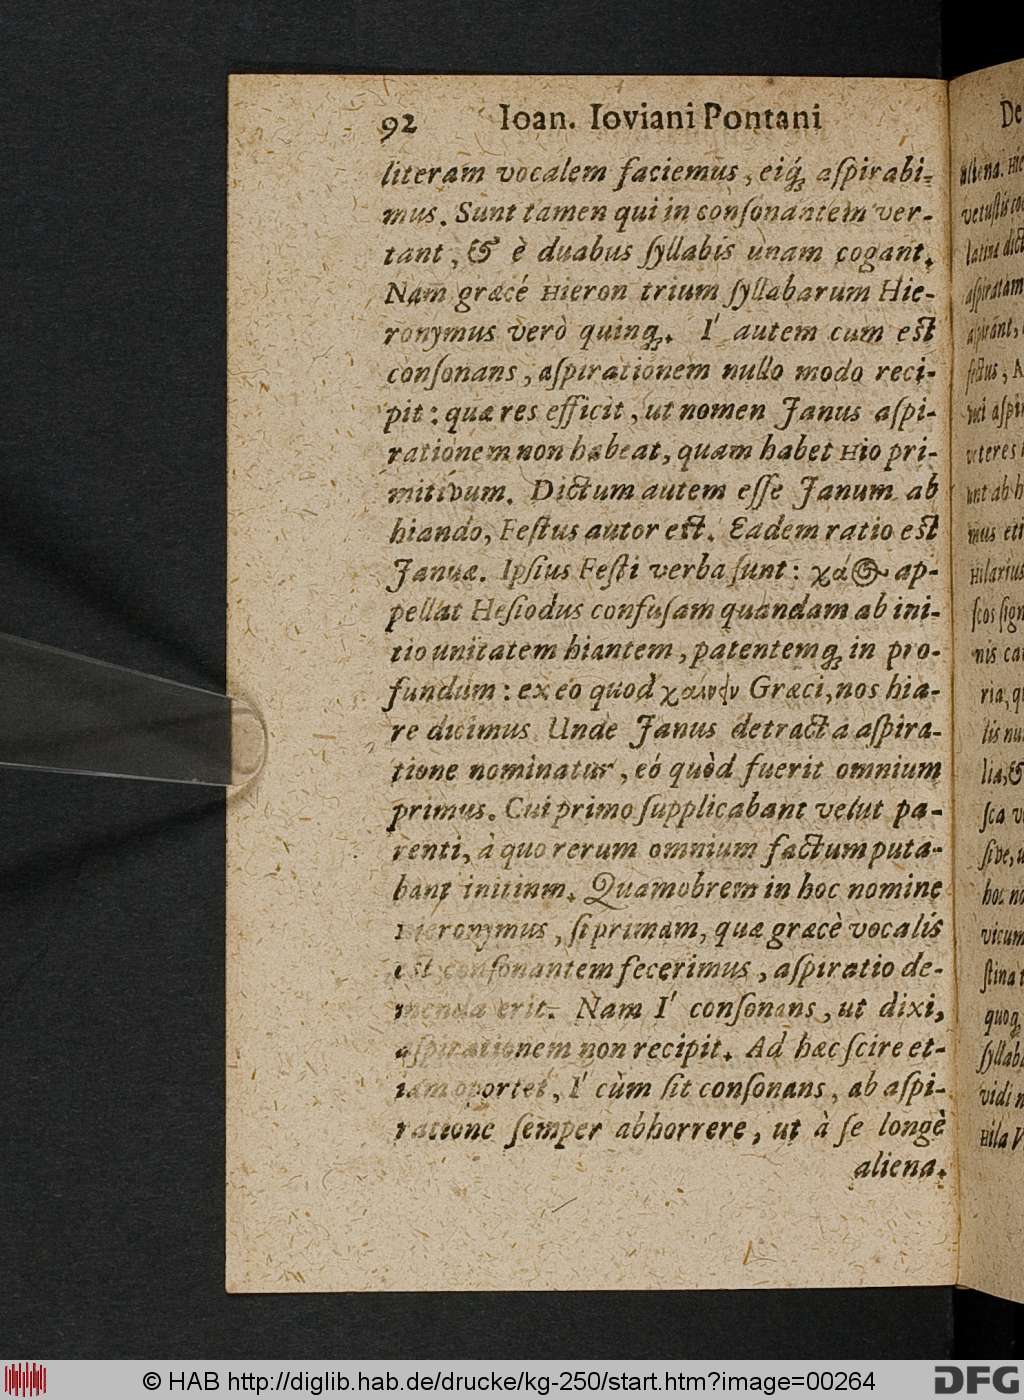 92 Ioan. Ioviani Pontani
literam vocalem faciemus, eiq́; aſpirabi-
mus. Sunt tamen qui in conſonantem ver-
tant, & è duabus ſyllabis unam cogant.
Nam græcé Hieron trium ſyllabarum Hie-
ronymus verò quinq;. I' autem cum eſt
conſonans, aſpirationem nullo modo reci-
pit: quæ res efficit, ut nomen Janus aſpi-
rationem non habeat, quam habet Hio pri-
mitivum. Dictum autem eſſe Janum ab
hiando, Feſtus autor eſt. Eadem ratio eſt
Januæ. Ipſius Feſti verba ſunt: χάος ap-
pellat Heſiodus confuſam quandam ab ini-
tio unitatem hiantem, patentemq; in pro-
fundum: ex eo quod χαίνειν Græci, nos hia-
re dicimus Unde Janus detracta aſpira-
tione nominatur, eó quòd fuerit omnium
primus. Cui primo ſupplicabant velut pa-
renti, à quo rerum omnium factum puta-
bant initinm. Quamobrem in hoc nomine
Hieronymus, ſi primam, quæ græcè vocalis
eſt conſonantem fecerimus, aſpiratio de-
menda erit. Nam I' conſonans, ut dixi,
aſpirationem non recipit. Ad hæc ſcire et-
iam oportet, I' cùm ſit conſonans, ab aſpi-
ratione ſemper abhorrere, ut à ſe longè
aliena.
De
aliena. Hie
vetuſtis co
latina dict
aſpiratam
aſpirant,
feſtus, A
voci aſpir
veteres
unt ab h
mus eti
Hilarius
ſcos ſign
nis ca
ria, q
lis nu
lia, &
ſca v
ſive, u
hoc no
vicum
ſtina t
quoq;
ſyllaba
vidi n
Hila V
© HAB http://diglib.hab.de/drucke/kg-250/start.htm?image=00264
DFG